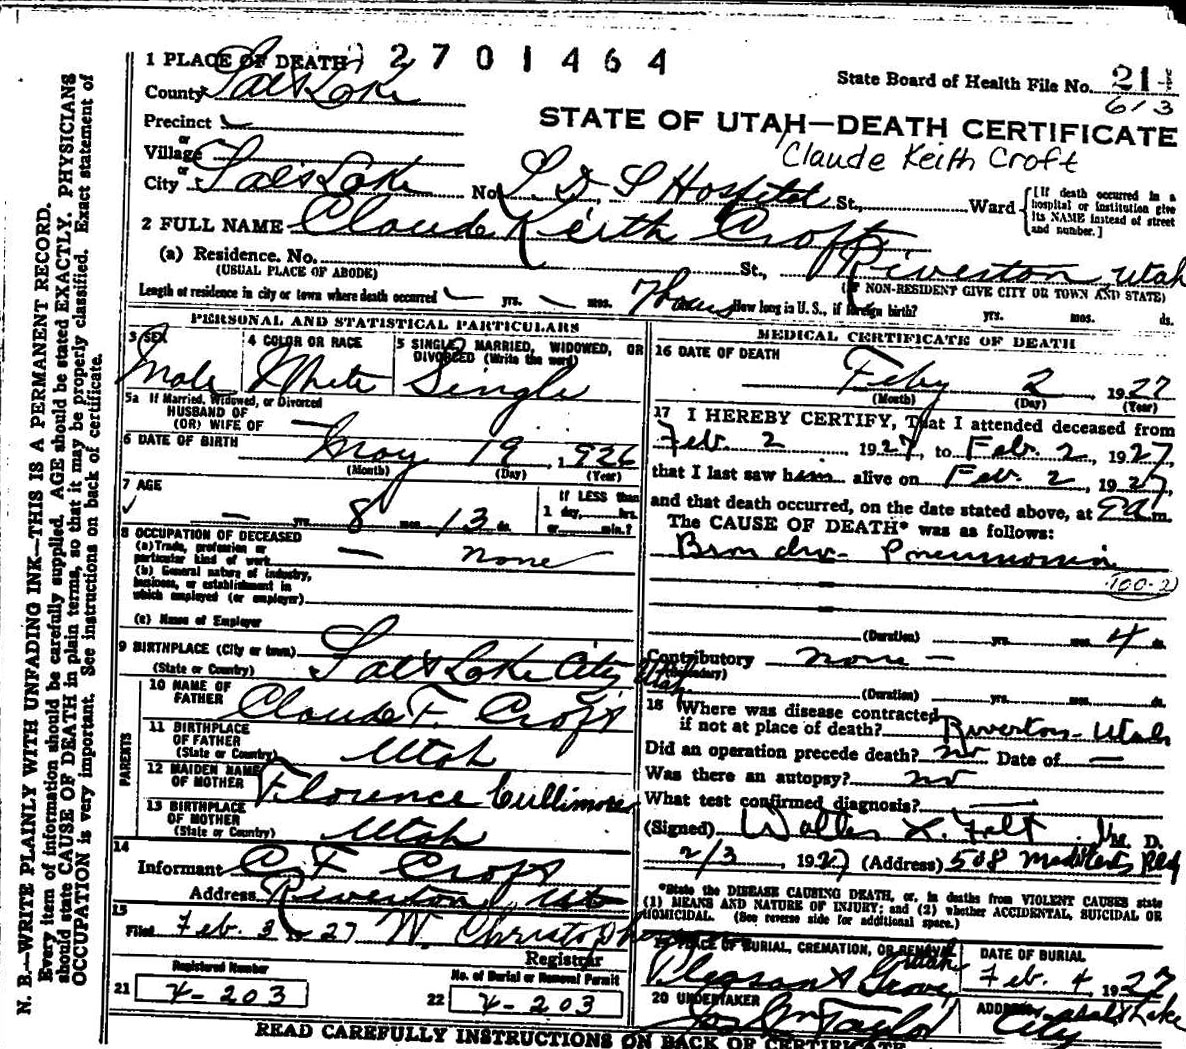 1 PLACE OF DEATH 2701464
State Board of Health File No. 214
613
County Salt Lake
STATE OF UTAH—DEATH CERTIFICATE
Precinct
Claude Keith Croft
or
Village
or
City Salt Lake No. L. D. S Hospital St., Ward [If death occurred in a hospital or institution give its NAME instead of street and number.]
2 FULL NAME Claude Keith Croft
(a) Residence. No. St., Riverton, Utah
(USUAL PLACE OF ABODE) (IF NON-RESIDENT GIVE CITY OR TOWN AND STATE)
Length of residence in city or town where death occurred — yrs. — mos. 7 hours How long in U. S., if foreign birth? yrs. mos. ds.
PERSONAL AND STATISTICAL PARTICULARS
3 SEX
Male
4 COLOR OR RACE
White
5 SINGLE, MARRIED, WIDOWED, OR DIVORCED (Write the word)
Single
5a If Married, Widowed, or Divorced
HUSBAND OF
(OR) WIFE OF —
6 DATE OF BIRTH May 19, 1926
(Month) (Day) (Year)
7 AGE
— yrs. 8 mos. 13 ds.
If LESS than
1 day, hrs.
or min.?
8 OCCUPATION OF DECEASED
(a) Trade, profession or
particular kind of work — none
(b) General nature of industry,
business, or establishment in
which employed (or employer)
(c) Name of Employer
9 BIRTHPLACE (City or town) Salt Lake City
(State or Country) Utah
PARENTS
10 NAME OF
FATHER Claude F. Croft
11 BIRTHPLACE
OF FATHER
(State or Country) Utah
12 MAIDEN NAME
OF MOTHER Florence Cullimore
13 BIRTHPLACE
OF MOTHER
(State or Country) Utah
14
Informant C F Croft
Address Riverton, Ut
15
Filed Feb. 3 1927 W. Christopherson
Registrar
Registered Number
21 4-203
No. of Burial or Removal Permit
22 4-203
MEDICAL CERTIFICATE OF DEATH
16 DATE OF DEATH
Feby 2, 1927
(Month) (Day) (Year)
17 I HEREBY CERTIFY, That I attended deceased from
Feb. 2 1927, to Feb. 2, 1927,
that I last saw him alive on Feb. 2, 1927,
and that death occurred, on the date stated above, at m.
The CAUSE OF DEATH* was as follows:
Broncho- Pneumonia
100-2
(Duration) yrs. mos. 4 ds.
Contributory none —
(Secondary)
(Duration) yrs. mos. ds.
18 Where was disease contracted
if not at place of death? Riverton- Utah
Did an operation precede death? no Date of —
Was there an autopsy? no
What test confirmed diagnosis? —
(Signed) Walter L. Felt, M. D.
2/3, 1927 (Address) 508 Medl Arts Bldg
*State the DISEASE CAUSING DEATH, or, in deaths from VIOLENT CAUSES state
(1) MEANS AND NATURE OF INJURY; and (2) whether ACCIDENTAL, SUICIDAL OR
HOMICIDAL. (See reverse side for additional space.)
19 PLACE OF BURIAL, CREMATION, OR REMOVAL
Pleasant Grove, Utah
DATE OF BURIAL
Feb. 4, 1927
20 UNDERTAKER
Jos Wm Taylor
ADDRESS Salt Lake
City
READ CAREFULLY INSTRUCTIONS ON BACK OF CERTIFICATE
N. B.—WRITE PLAINLY WITH UNFADING INK—THIS IS A PERMANENT RECORD.
Every item of information should be carefully supplied. AGE should be stated EXACTLY. PHYSICIANS
should state CAUSE OF DEATH in plain terms, so that it may be properly classified. Exact statement of
OCCUPATION is very important. See instructions on back of certificate.